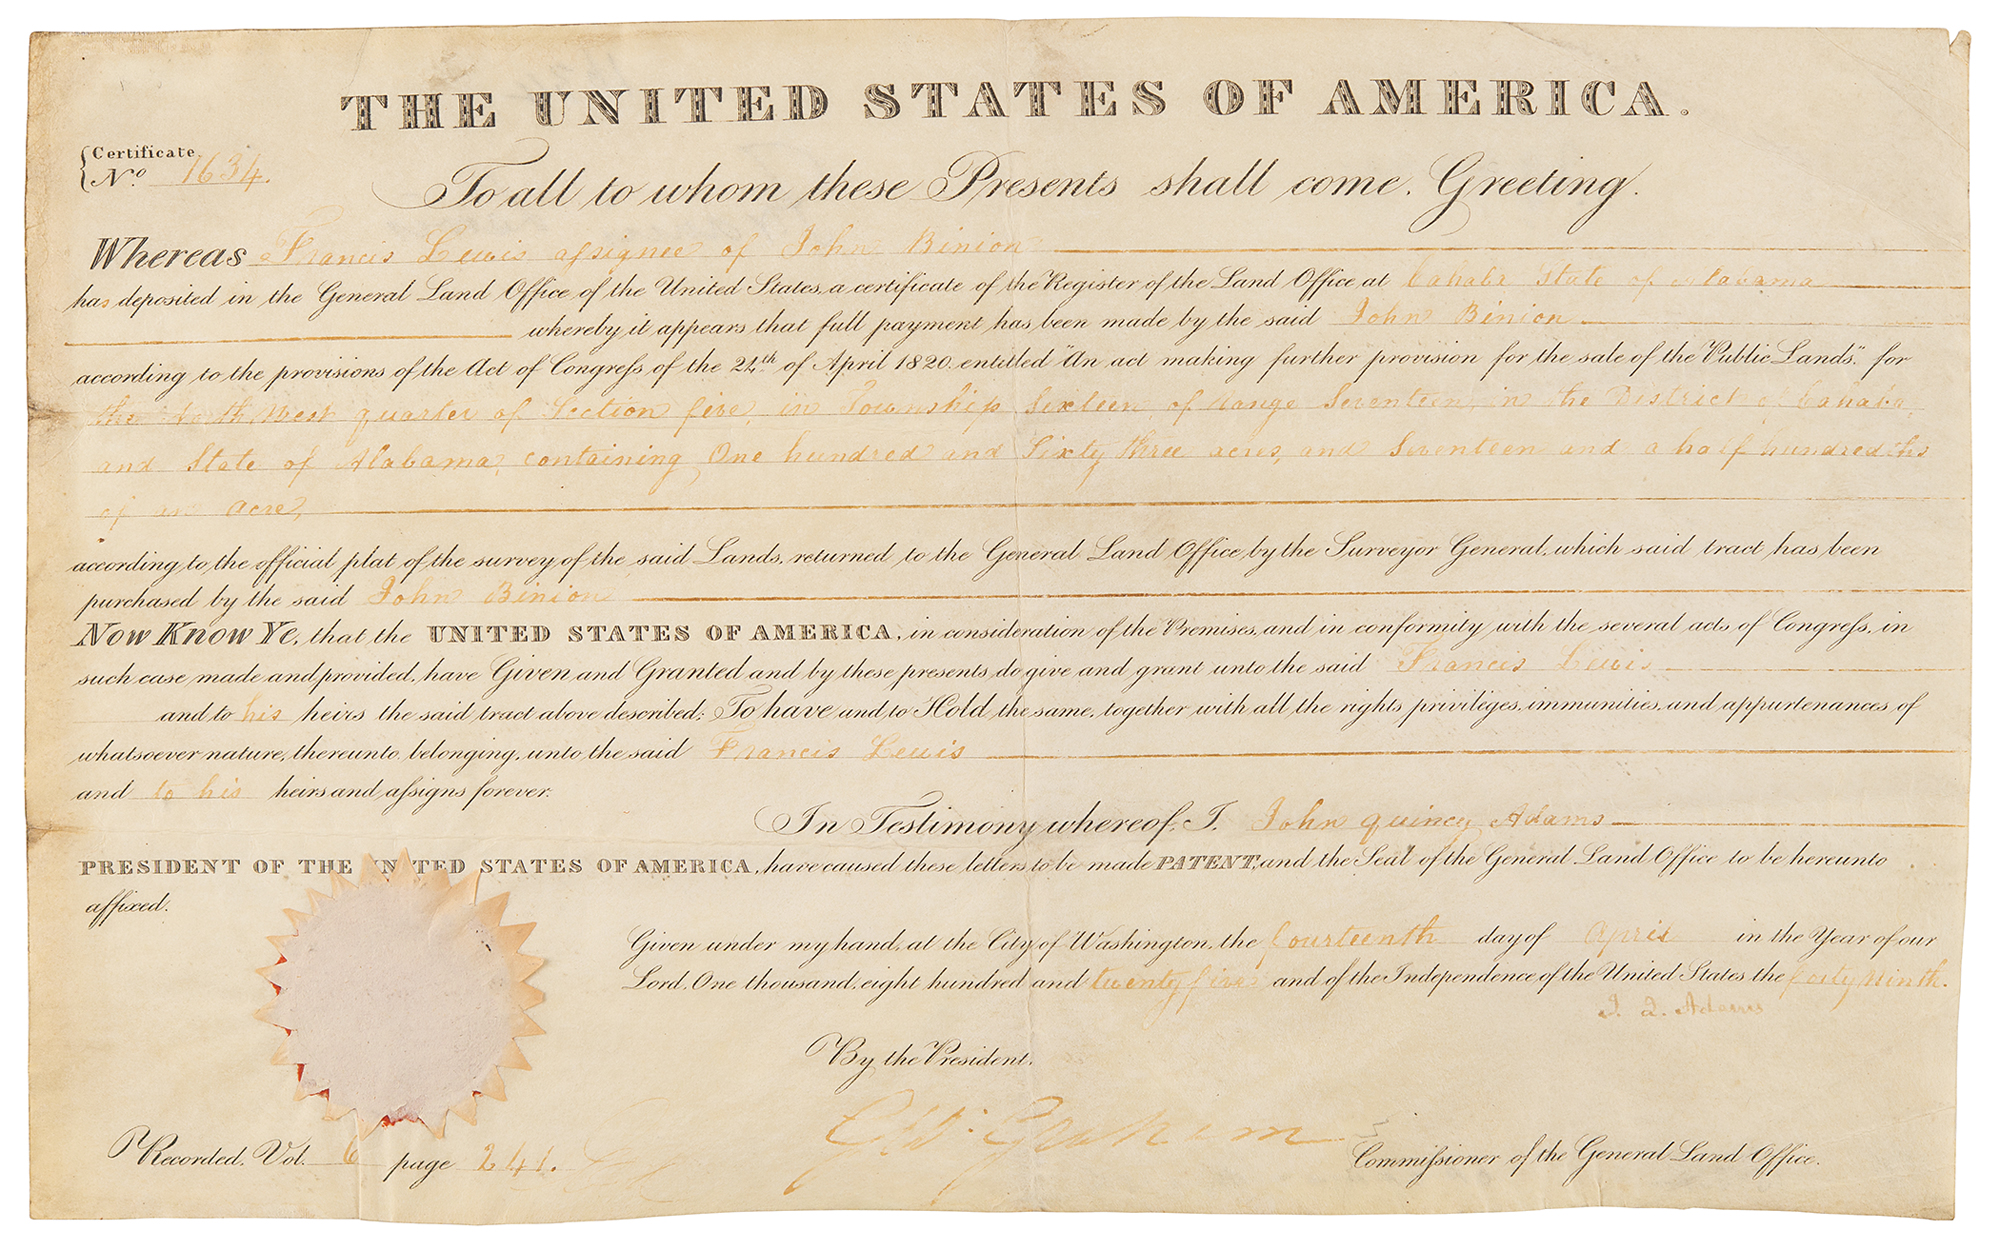 THE UNITED STATES OF AMERICA.
Certificate
No. 1634.
To all to whom these Presents shall come. Greeting.
Whereas Francis Lewis assignee of John Binion
has deposited in the General Land Office of the United States, a certificate of the Register of the Land Office at Cahaba State of Alabama
whereby it appears that full payment has been made by the said John Binion
according to the provisions of the Act of Congress of the 24th of April 1820. entitled "An act making further provision for the sale of the Public Lands." for
the North West quarter of Section five, in Township Sixteen, of Range Seventeen, in the District of Cahaba,
and State of Alabama, containing One hundred and Sixty three acres, and Seventeen and a half hundredths
of an acre,
according to the official plat of the survey of the said Lands, returned to the General Land Office by the Surveyor General, which said tract has been
purchased by the said John Binion
Now Know Ye, that the UNITED STATES OF AMERICA, in consideration of the Premises, and in conformity with the several acts of Congress, in
such case made and provided, have Given and Granted and by these presents do give and grant unto the said Francis Lewis
and to his heirs the said tract above described; To have and to Hold the same, together with all the rights, privileges, immunities, and appurtenances of
whatsoever nature, thereunto belonging, unto the said Francis Lewis
and to his heirs and assigns forever.
In Testimony whereof, I, John Quincy Adams
PRESIDENT OF THE UNITED STATES OF AMERICA, have caused these letters to be made PATENT, and the Seal of the General Land Office to be hereunto
affixed.
Given under my hand, at the City of Washington, the fourteenth day of April in the Year of our
Lord, One thousand, eight hundred and twenty five and of the Independence of the United States the forty Ninth.
J. Q. Adams
By the President.
Geo: Graham Commissioner of the General Land Office.
Recorded, Vol. 6 page 241.